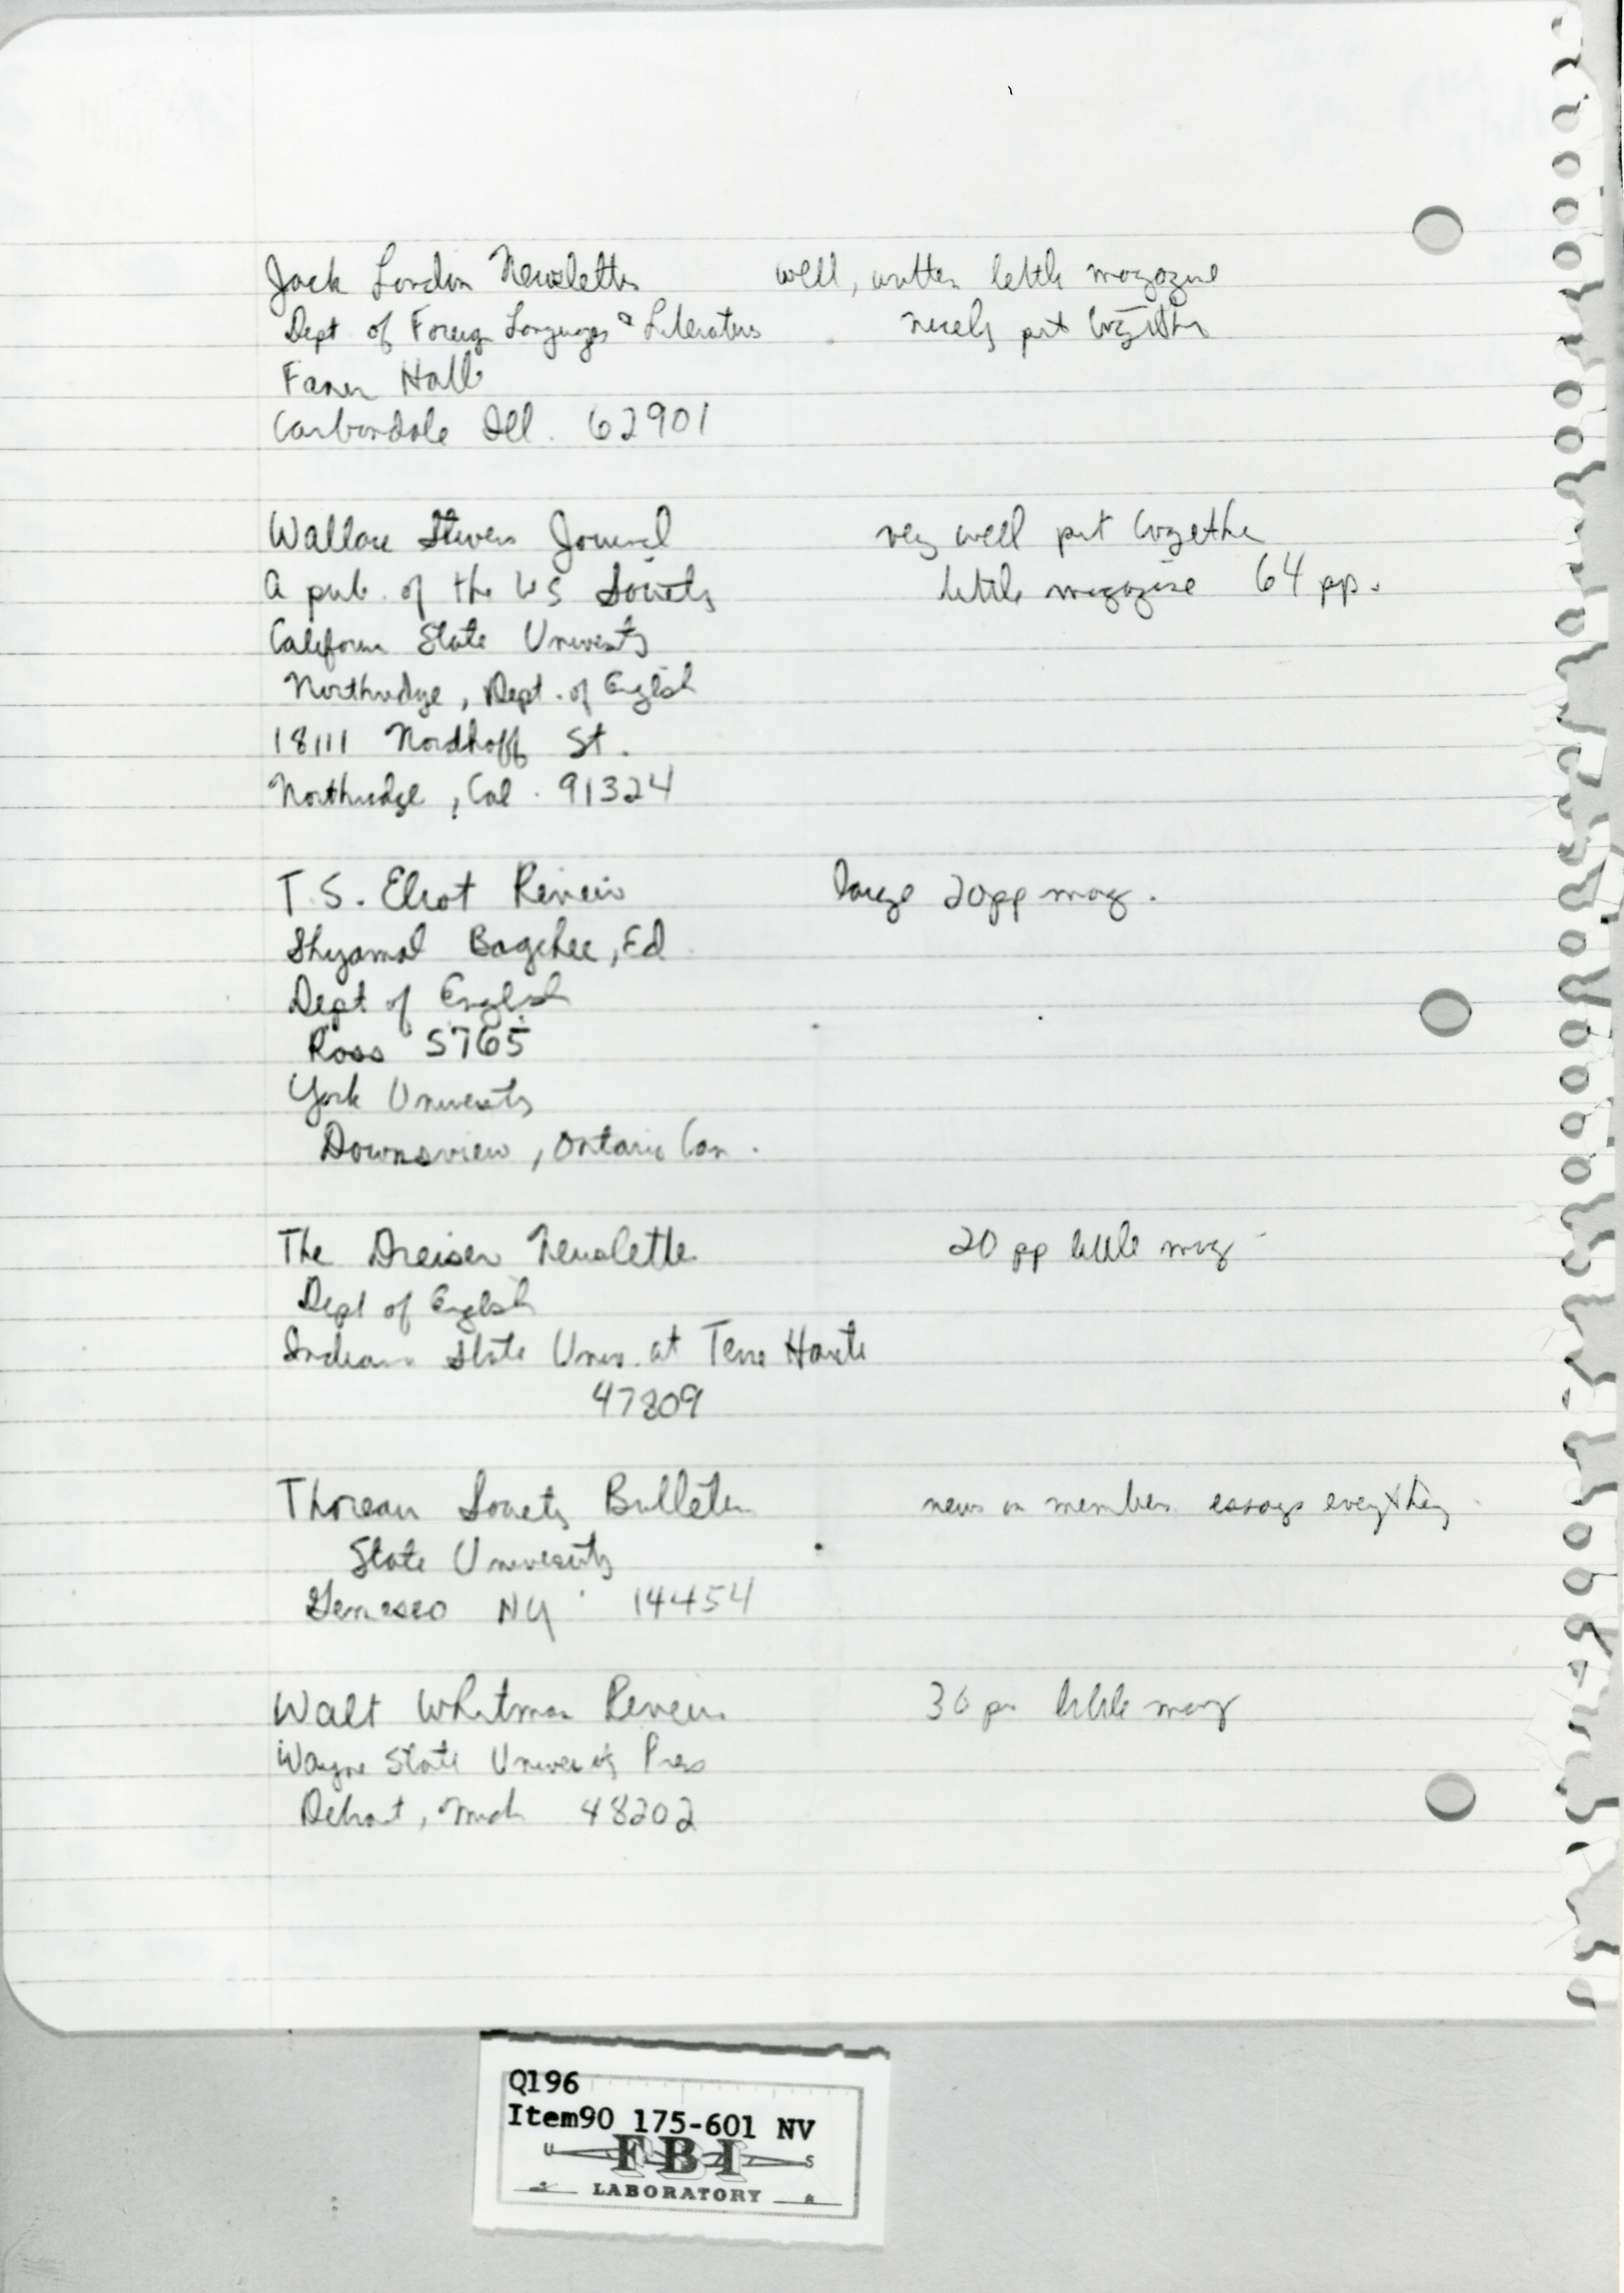 Jack London Newsletter well, written little magazine
Dept of Foreign Languages & Literatures nicely put together
Faner Hall
Carbondale Ill. 62901
Wallace Stevens Journal very well put together
A pub. of the WS Society little magazine 64 pp.
California State University
Northridge, Dept. of English
18111 Nordhoff St.
Northridge, Cal. 91324
T.S. Eliot Review large 20pp mag.
Shyamal Bagchee, Ed
Dept of English
Ross S765
York University
Downsview, Ontario Can.
The Dreiser Newsletter 20 pp little mag
Dept of English
Indiana State Univ. at Terre Haute
47809
Thoreau Society Bulletin news on members essays everything
State University
Geneseo NY 14454
Walt Whitman Review 36 pp little mag
Wayne State University Press
Detroit, Mich 48202
Q196
Item90 175-601 NV
U S
FBI
LABORATORY